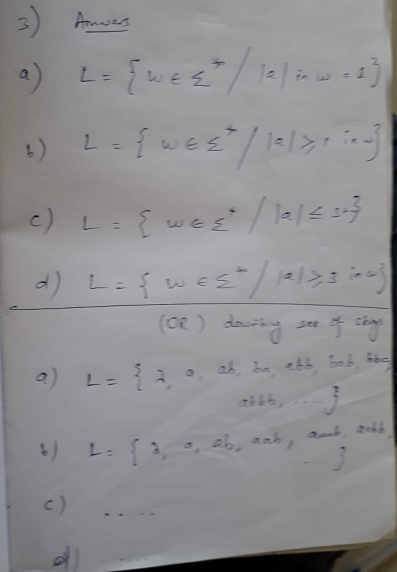 3) Answers
a) L = { w ∈ Σ* / |a| in w = 1}
b) L = { w ∈ Σ* / |a| ≥ 1 in w}
c) L = { w ∈ Σ* / |a| ≤ }
d) L = { w ∈ Σ* / |a| ≥ 3 in w}
(OR) set of
a) L = { λ, a, ab, ba, abb, bab, bba,
abbb, .... }
b) L = { λ, a, ab, aab, aaab, aabb
... }
c) .....
d)